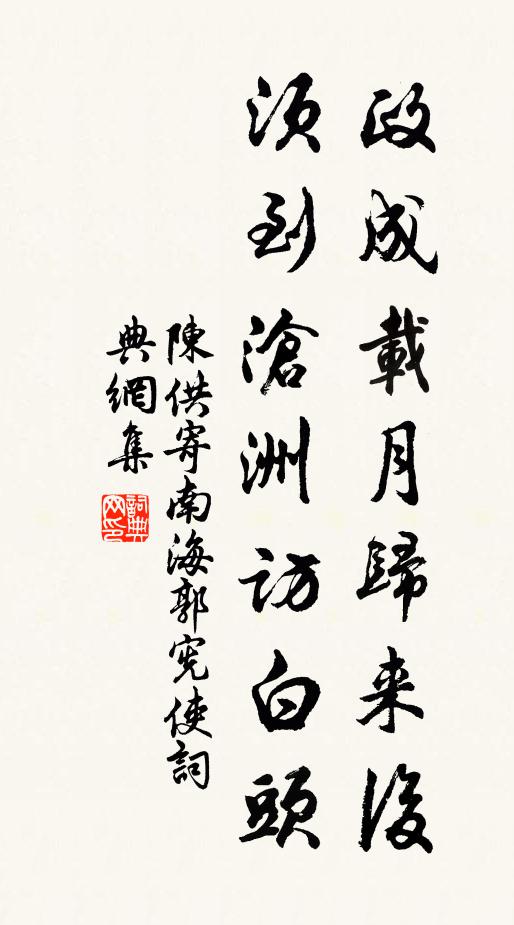 政成載月歸来後
須到滄洲訪白頭
陳供寄南海郭宪使詞
典網集
詞典
网印